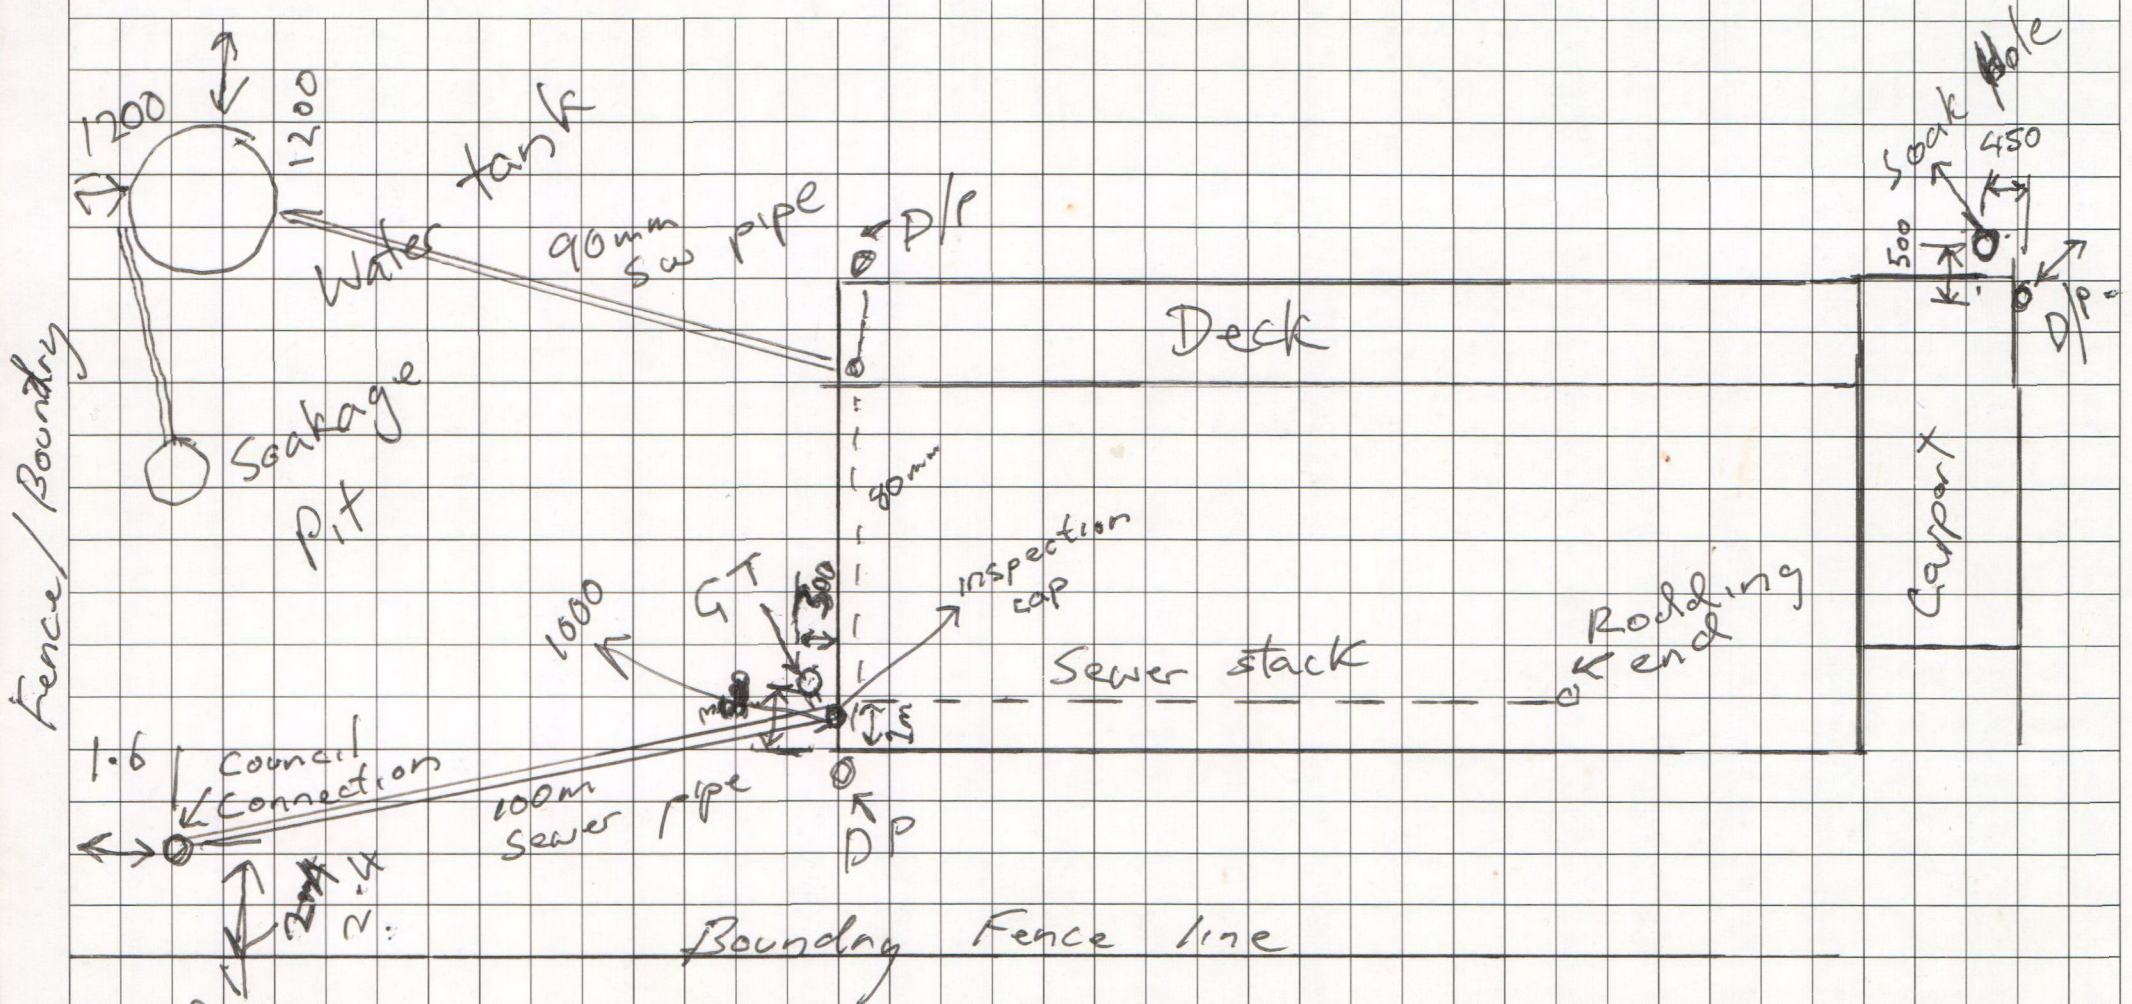 1200
1200
Water tank
90mm
sw pipe
D/P
Soak Hole
450
500
D/P
Deck
Fence / Boundry
Soakage
Pit
80mm
Carport
1000
GT
300
inspection
cap
Sewer stack
Rodding
end
1.6
Council
Connection
100m
sewer pipe
DP
2.4
Boundry Fence line